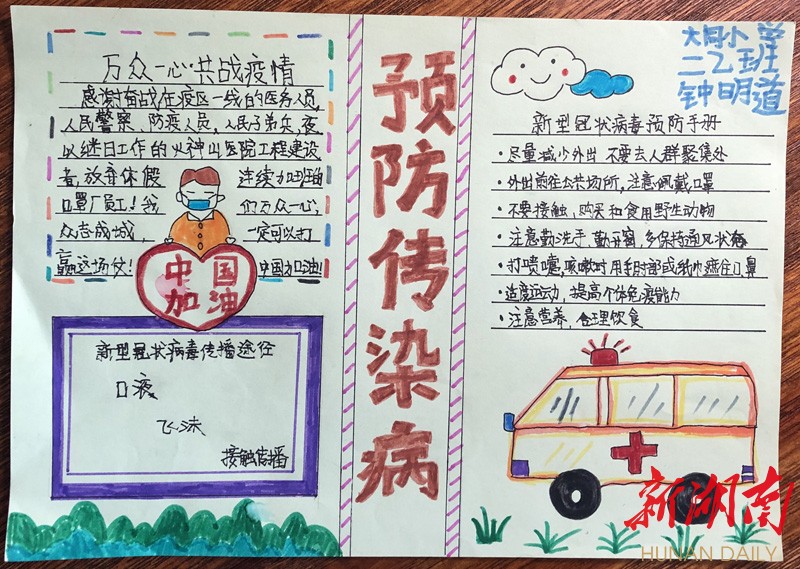 万众一心共战疫情
感谢奋战在疫区一线的医务人员,
人民警察、防疫人员,人民子弟兵,夜
以继日工作的火神山医院工程建设
者,放弃休假 连续加班的
口罩厂员工!我 们万众一心,
众志成城, 一定可以打
赢这场仗! 中国加油!
中国
加油
新型冠状病毒传播途径
口液
飞沫
接触传播
预防传染病
大同小学
二乙班
钟明道
新型冠状病毒预防手册
·尽量减少外出 不要去人群聚集处
·外出前往公共场所,注意佩戴口罩
·不要接触,购买和食用野生动物
·注意勤洗手,勤开窗,多保持通风状态
·打喷嚏,咳嗽时用手肘部或纸巾遮住口鼻
·适度运动,提高个体免疫能力
·注意营养,合理饮食
新湖南
HUNAN DAILY